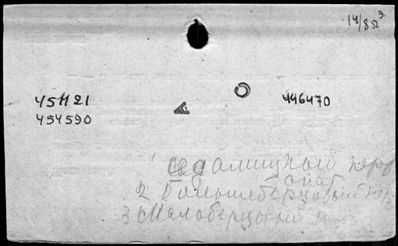 14/8 52 3
45H21
454590
446470
седалищный нерв
2 Большеберцовый нер
3 Малоберцовый н